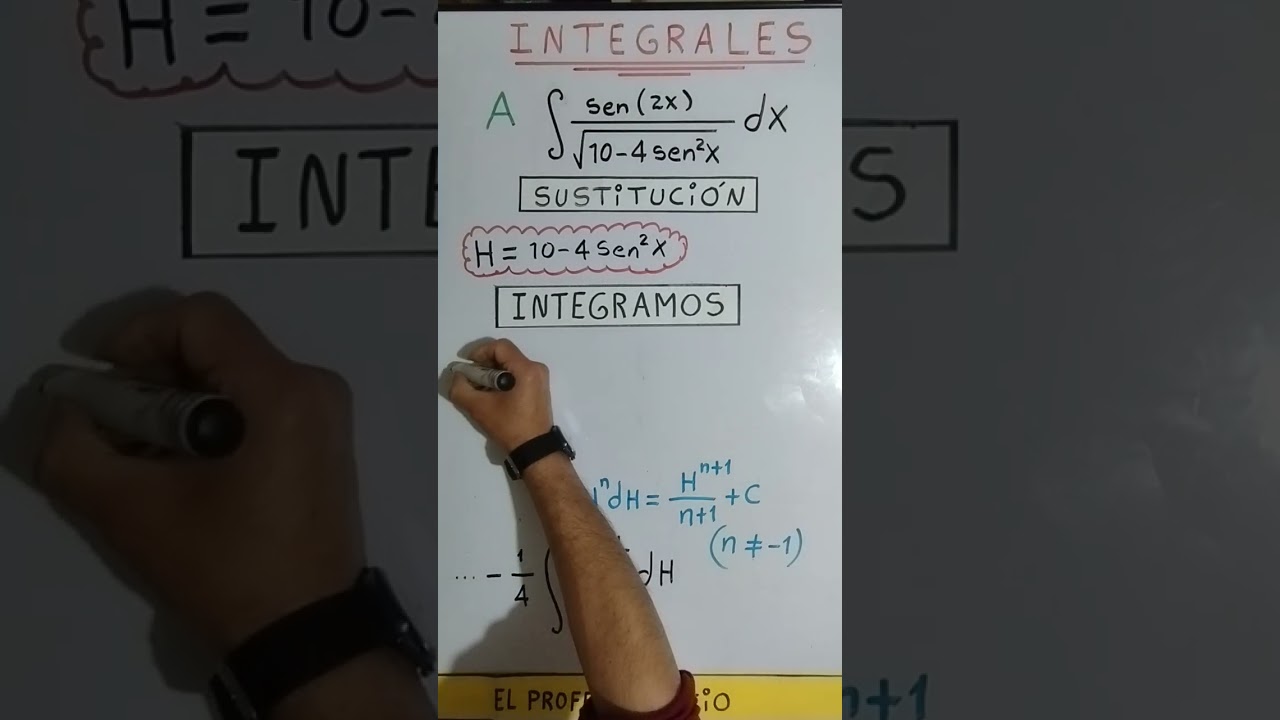 INTEGRALES
A ∫ sen(2x) / √10-4sen²x dx
SUSTiTUCiÓN
H = 10-4 sen²x
INTEGRAMOS
ⁿdH = Hⁿ⁺¹ / n+1 + C
(n ≠ -1)
... - 1/4 ∫ dH
EL PROF